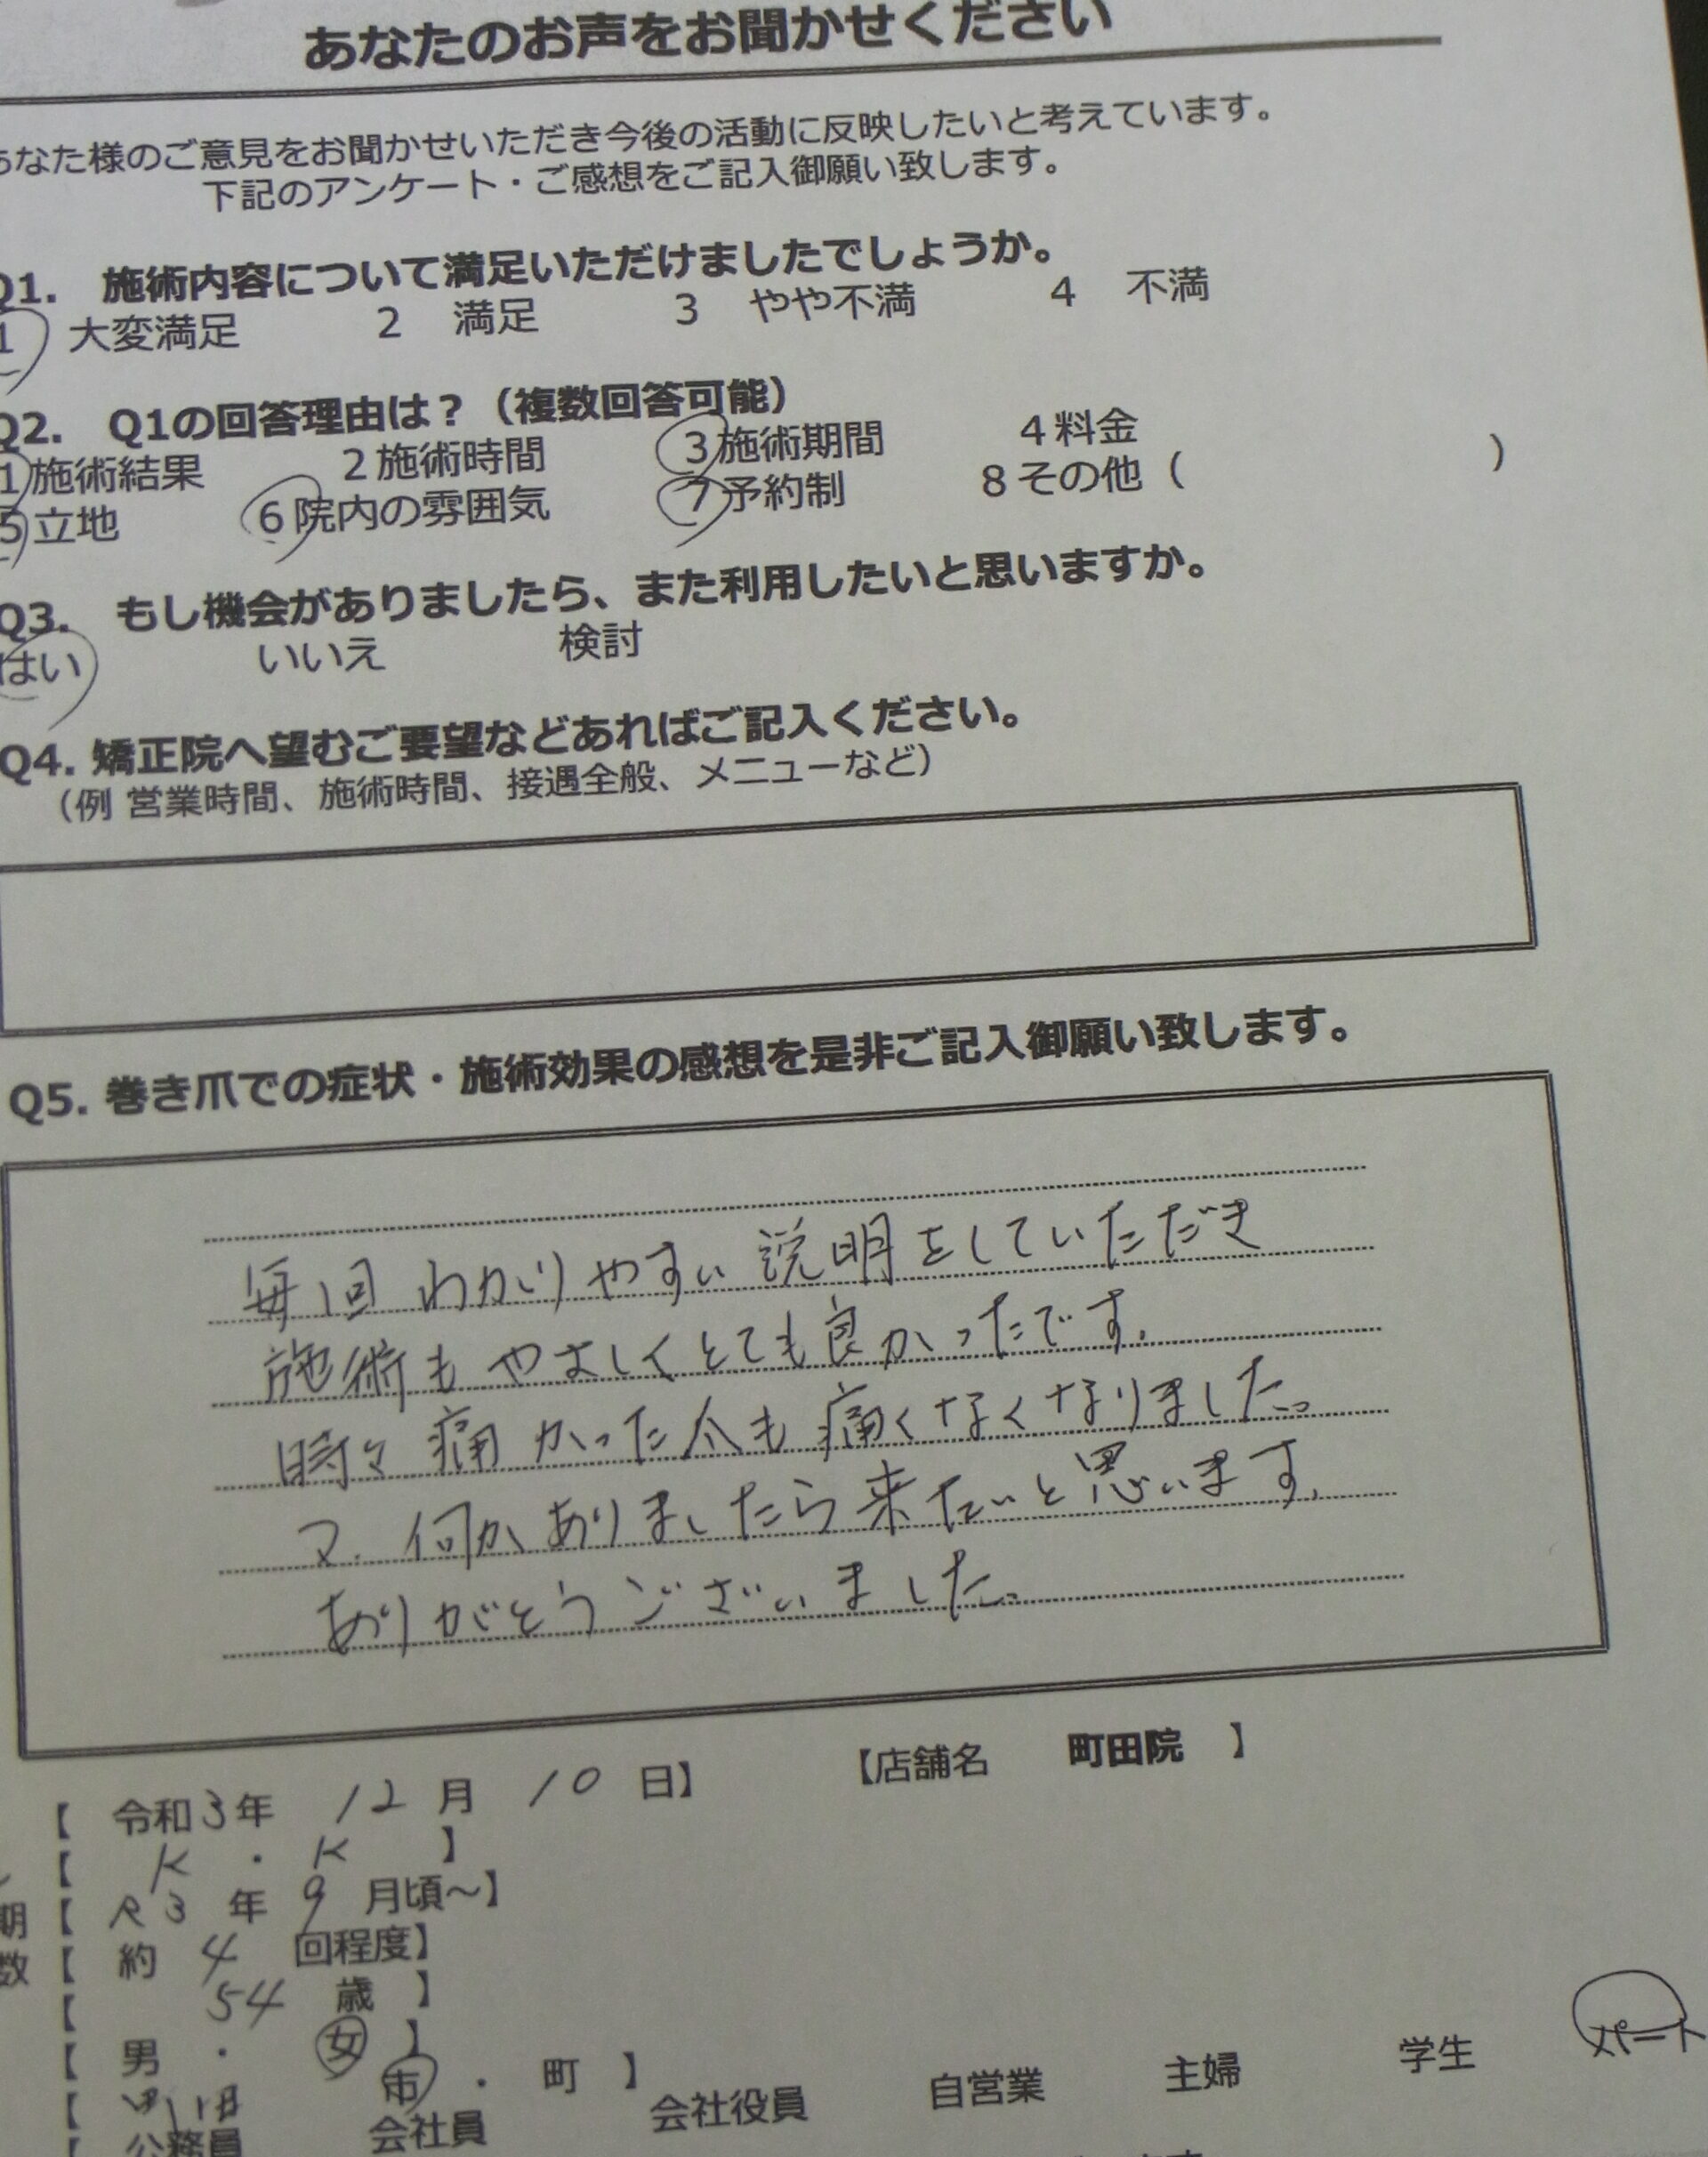 あなたのお声をお聞かせください
あなた様のご意見をお聞かせいただき今後の活動に反映したいと考えています。
下記のアンケート・ご感想をご記入御願い致します。
Q1. 施術内容について満足いただけましたでしょうか。
1 大変満足 2 満足 3 やや不満 4 不満
Q2. Q1の回答理由は?(複数回答可能)
1施術結果 2施術時間 3施術期間 4料金
5立地 6院内の雰囲気 7予約制 8その他( )
Q3. もし機会がありましたら、また利用したいと思いますか。
はい いいえ 検討
Q4. 矯正院へ望むご要望などあればご記入ください。
(例 営業時間、施術時間、接遇全般、メニューなど)
Q5. 巻き爪での症状・施術効果の感想を是非ご記入御願い致します。
毎回わかりやすい説明をしていただき
施術もやさしくとても良かったです。
時々痛かった爪も痛くなくなりました。
又、何かありましたら来たいと思います。
ありがとうございました。
【 令和3年 12月 10日】 【店舗名 町田院 】
【 K ・ K 】
期【 R3 年 9 月頃~】
数【 約 4 回程度】
【 54 歳 】
【 男 ・ 女 】
【 市 ・ 町 】
【 公務員 会社員 会社役員 自営業 主婦 学生 パート